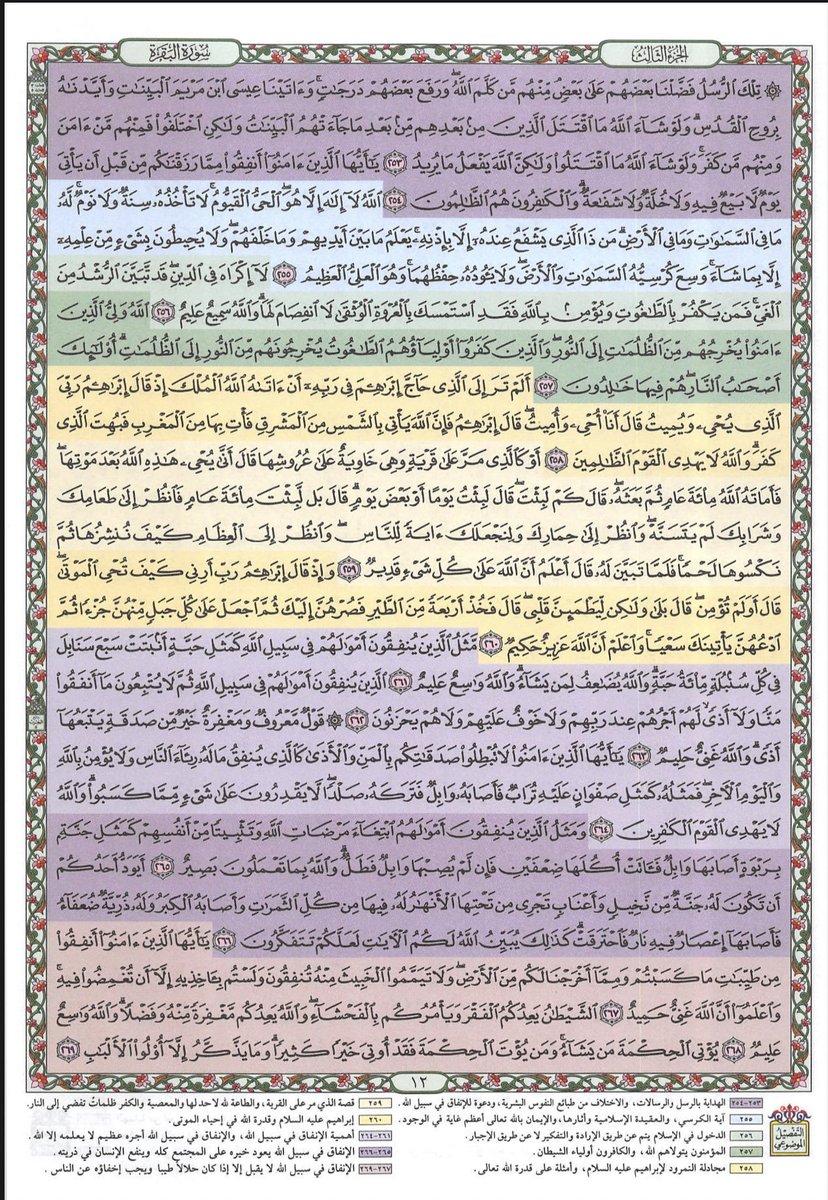 الجزء الثالث
سورة البقرة
۞ تِلْكَ ٱلرُّسُلُ فَضَّلْنَا بَعْضَهُمْ عَلَىٰ بَعْضٍ مِّنْهُم مَّن كَلَّمَ ٱللَّهُ وَرَفَعَ بَعْضَهُمْ دَرَجَٰتٍ وَءَاتَيْنَا عِيسَى ٱبْنَ مَرْيَمَ ٱلْبَيِّنَٰتِ وَأَيَّدْنَٰهُ
بِرُوحِ ٱلْقُدُسِ وَلَوْ شَآءَ ٱللَّهُ مَا ٱقْتَتَلَ ٱلَّذِينَ مِنۢ بَعْدِهِم مِّنۢ بَعْدِ مَا جَآءَتْهُمُ ٱلْبَيِّنَٰتُ وَلَٰكِنِ ٱخْتَلَفُوا۟ فَمِنْهُم مَّنْ ءَامَنَ
وَمِنْهُم مَّن كَفَرَ وَلَوْ شَآءَ ٱللَّهُ مَا ٱقْتَتَلُوا۟ وَلَٰكِنَّ ٱللَّهَ يَفْعَلُ مَا يُرِيدُ ٢٥٣ يَٰٓأَيُّهَا ٱلَّذِينَ ءَامَنُوٓا۟ أَنفِقُوا۟ مِمَّا رَزَقْنَٰكُم مِّن قَبْلِ أَن يَأْتِىَ
يَوْمٌ لَّا بَيْعٌ فِيهِ وَلَا خُلَّةٌ وَلَا شَفَٰعَةٌ وَٱلْكَٰفِرُونَ هُمُ ٱلظَّٰلِمُونَ ٢٥٤ ٱللَّهُ لَآ إِلَٰهَ إِلَّا هُوَ ٱلْحَىُّ ٱلْقَيُّومُ لَا تَأْخُذُهُۥ سِنَةٌ وَلَا نَوْمٌ لَّهُۥ
مَا فِى ٱلسَّمَٰوَٰتِ وَمَا فِى ٱلْأَرْضِ مَن ذَا ٱلَّذِى يَشْفَعُ عِندَهُۥٓ إِلَّا بِإِذْنِهِۦ يَعْلَمُ مَا بَيْنَ أَيْدِيهِمْ وَمَا خَلْفَهُمْ وَلَا يُحِيطُونَ بِشَىْءٍ مِّنْ عِلْمِهِۦٓ
إِلَّا بِمَا شَآءَ وَسِعَ كُرْسِيُّهُ ٱلسَّمَٰوَٰتِ وَٱلْأَرْضَ وَلَا يَـُٔودُهُۥ حِفْظُهُمَا وَهُوَ ٱلْعَلِىُّ ٱلْعَظِيمُ ٢٥٥ لَآ إِكْرَاهَ فِى ٱلدِّينِ قَد تَّبَيَّنَ ٱلرُّشْدُ مِنَ
ٱلْغَىِّ فَمَن يَكْفُرْ بِٱلطَّٰغُوتِ وَيُؤْمِنۢ بِٱللَّهِ فَقَدِ ٱسْتَمْسَكَ بِٱلْعُرْوَةِ ٱلْوُثْقَىٰ لَا ٱنفِصَامَ لَهَا وَٱللَّهُ سَمِيعٌ عَلِيمٌ ٢٥٦ ٱللَّهُ وَلِىُّ ٱلَّذِينَ
ءَامَنُوا۟ يُخْرِجُهُم مِّنَ ٱلظُّلُمَٰتِ إِلَى ٱلنُّورِ وَٱلَّذِينَ كَفَرُوٓا۟ أَوْلِيَآؤُهُمُ ٱلطَّٰغُوتُ يُخْرِجُونَهُم مِّنَ ٱلنُّورِ إِلَى ٱلظُّلُمَٰتِ أُو۟لَٰٓئِكَ
أَصْحَٰبُ ٱلنَّارِ هُمْ فِيهَا خَٰلِدُونَ ٢٥٧ أَلَمْ تَرَ إِلَى ٱلَّذِى حَآجَّ إِبْرَٰهِۦمَ فِى رَبِّهِۦٓ أَنْ ءَاتَىٰهُ ٱللَّهُ ٱلْمُلْكَ إِذْ قَالَ إِبْرَٰهِۦمُ رَبِّىَ
ٱلَّذِى يُحْىِۦ وَيُمِيتُ قَالَ أَنَا۠ أُحْىِۦ وَأُمِيتُ قَالَ إِبْرَٰهِۦمُ فَإِنَّ ٱللَّهَ يَأْتِى بِٱلشَّمْسِ مِنَ ٱلْمَشْرِقِ فَأْتِ بِهَا مِنَ ٱلْمَغْرِبِ فَبُهِتَ ٱلَّذِى
كَفَرَ وَٱللَّهُ لَا يَهْدِى ٱلْقَوْمَ ٱلظَّٰلِمِينَ ٢٥٨ أَوْ كَٱلَّذِى مَرَّ عَلَىٰ قَرْيَةٍ وَهِىَ خَاوِيَةٌ عَلَىٰ عُرُوشِهَا قَالَ أَنَّىٰ يُحْىِۦ هَٰذِهِ ٱللَّهُ بَعْدَ مَوْتِهَا
فَأَمَاتَهُ ٱللَّهُ مِا۟ئَةَ عَامٍ ثُمَّ بَعَثَهُۥ قَالَ كَمْ لَبِثْتَ قَالَ لَبِثْتُ يَوْمًا أَوْ بَعْضَ يَوْمٍ قَالَ بَل لَّبِثْتَ مِا۟ئَةَ عَامٍ فَٱنظُرْ إِلَىٰ طَعَامِكَ
وَشَرَابِكَ لَمْ يَتَسَنَّهْ وَٱنظُرْ إِلَىٰ حِمَارِكَ وَلِنَجْعَلَكَ ءَايَةً لِّلنَّاسِ وَٱنظُرْ إِلَى ٱلْعِظَامِ كَيْفَ نُنشِزُهَا ثُمَّ
نَكْسُوهَا لَحْمًا فَلَمَّا تَبَيَّنَ لَهُۥ قَالَ أَعْلَمُ أَنَّ ٱللَّهَ عَلَىٰ كُلِّ شَىْءٍ قَدِيرٌ ٢٥٩ وَإِذْ قَالَ إِبْرَٰهِۦمُ رَبِّ أَرِنِى كَيْفَ تُحْىِ ٱلْمَوْتَىٰ
قَالَ أَوَلَمْ تُؤْمِن قَالَ بَلَىٰ وَلَٰكِن لِّيَطْمَئِنَّ قَلْبِى قَالَ فَخُذْ أَرْبَعَةً مِّنَ ٱلطَّيْرِ فَصُرْهُنَّ إِلَيْكَ ثُمَّ ٱجْعَلْ عَلَىٰ كُلِّ جَبَلٍ مِّنْهُنَّ جُزْءًا ثُمَّ
ٱدْعُهُنَّ يَأْتِينَكَ سَعْيًا وَٱعْلَمْ أَنَّ ٱللَّهَ عَزِيزٌ حَكِيمٌ ٢٦٠ مَّثَلُ ٱلَّذِينَ يُنفِقُونَ أَمْوَٰلَهُمْ فِى سَبِيلِ ٱللَّهِ كَمَثَلِ حَبَّةٍ أَنۢبَتَتْ سَبْعَ سَنَابِلَ
فِى كُلِّ سُنۢبُلَةٍ مِّا۟ئَةُ حَبَّةٍ وَٱللَّهُ يُضَٰعِفُ لِمَن يَشَآءُ وَٱللَّهُ وَٰسِعٌ عَلِيمٌ ٢٦١ ٱلَّذِينَ يُنفِقُونَ أَمْوَٰلَهُمْ فِى سَبِيلِ ٱللَّهِ ثُمَّ لَا يُتْبِعُونَ مَآ أَنفَقُوا۟
مَنًّا وَلَآ أَذًى لَّهُمْ أَجْرُهُمْ عِندَ رَبِّهِمْ وَلَا خَوْفٌ عَلَيْهِمْ وَلَا هُمْ يَحْزَنُونَ ٢٦٢ ۞ قَوْلٌ مَّعْرُوفٌ وَمَغْفِرَةٌ خَيْرٌ مِّن صَدَقَةٍ يَتْبَعُهَآ
أَذًى وَٱللَّهُ غَنِىٌّ حَلِيمٌ ٢٦٣ يَٰٓأَيُّهَا ٱلَّذِينَ ءَامَنُوا۟ لَا تُبْطِلُوا۟ صَدَقَٰتِكُم بِٱلْمَنِّ وَٱلْأَذَىٰ كَٱلَّذِى يُنفِقُ مَالَهُۥ رِئَآءَ ٱلنَّاسِ وَلَا يُؤْمِنُ بِٱللَّهِ
وَٱلْيَوْمِ ٱلْءَاخِرِ فَمَثَلُهُۥ كَمَثَلِ صَفْوَانٍ عَلَيْهِ تُرَابٌ فَأَصَابَهُۥ وَابِلٌ فَتَرَكَهُۥ صَلْدًا لَّا يَقْدِرُونَ عَلَىٰ شَىْءٍ مِّمَّا كَسَبُوا۟ وَٱللَّهُ
لَا يَهْدِى ٱلْقَوْمَ ٱلْكَٰفِرِينَ ٢٦٤ وَمَثَلُ ٱلَّذِينَ يُنفِقُونَ أَمْوَٰلَهُمُ ٱبْتِغَآءَ مَرْضَاتِ ٱللَّهِ وَتَثْبِيتًا مِّنْ أَنفُسِهِمْ كَمَثَلِ جَنَّةٍۭ
بِرَبْوَةٍ أَصَابَهَا وَابِلٌ فَـَٔاتَتْ أُكُلَهَا ضِعْفَيْنِ فَإِن لَّمْ يُصِبْهَا وَابِلٌ فَطَلٌّ وَٱللَّهُ بِمَا تَعْمَلُونَ بَصِيرٌ ٢٦٥ أَيَوَدُّ أَحَدُكُمْ
أَن تَكُونَ لَهُۥ جَنَّةٌ مِّن نَّخِيلٍ وَأَعْنَابٍ تَجْرِى مِن تَحْتِهَا ٱلْأَنْهَٰرُ لَهُۥ فِيهَا مِن كُلِّ ٱلثَّمَرَٰتِ وَأَصَابَهُ ٱلْكِبَرُ وَلَهُۥ ذُرِّيَّةٌ ضُعَفَآءُ
فَأَصَابَهَآ إِعْصَارٌ فِيهِ نَارٌ فَٱحْتَرَقَتْ كَذَٰلِكَ يُبَيِّنُ ٱللَّهُ لَكُمُ ٱلْءَايَٰتِ لَعَلَّكُمْ تَتَفَكَّرُونَ ٢٦٦ يَٰٓأَيُّهَا ٱلَّذِينَ ءَامَنُوٓا۟ أَنفِقُوا۟
مِن طَيِّبَٰتِ مَا كَسَبْتُمْ وَمِمَّآ أَخْرَجْنَا لَكُم مِّنَ ٱلْأَرْضِ وَلَا تَيَمَّمُوا۟ ٱلْخَبِيثَ مِنْهُ تُنفِقُونَ وَلَسْتُم بِـَٔاخِذِيهِ إِلَّآ أَن تُغْمِضُوا۟ فِيهِ
وَٱعْلَمُوٓا۟ أَنَّ ٱللَّهَ غَنِىٌّ حَمِيدٌ ٢٦٧ ٱلشَّيْطَٰنُ يَعِدُكُمُ ٱلْفَقْرَ وَيَأْمُرُكُم بِٱلْفَحْشَآءِ وَٱللَّهُ يَعِدُكُم مَّغْفِرَةً مِّنْهُ وَفَضْلًا وَٱللَّهُ وَٰسِعٌ
عَلِيمٌ ٢٦٨ يُؤْتِى ٱلْحِكْمَةَ مَن يَشَآءُ وَمَن يُؤْتَ ٱلْحِكْمَةَ فَقَدْ أُوتِىَ خَيْرًا كَثِيرًا وَمَا يَذَّكَّرُ إِلَّآ أُو۟لُوا۟ ٱلْأَلْبَٰبِ ٢٦٩
١٢
التفصيل الموضوعي
٢٥٣-٢٥٤ الهداية بالرسل والرسالات، والاختلاف من طبائع النفوس البشرية، ودعوة للإنفاق في سبيل الله.
٢٥٥ آية الكرسي، والعقيدة الإسلامية وآثارها، والإيمان بالله تعالى أعظم غاية في الوجود.
٢٥٦ الدخول في الإسلام يتم عن طريق الإرادة والتفكير لا عن طريق الإجبار.
٢٥٧ المؤمنون يتولاهم الله، والكافرون أولياء الشيطان.
٢٥٨ مجادلة النمرود لإبراهيم عليه السلام، وأمثلة على قدرة الله تعالى.
٢٥٩ قصة الذي مر على القرية، والطاعة لله لاحد لها والمعصية والكفر ظلماتٌ تفضي إلى النار.
٢٦٠ إبراهيم عليه السلام وقدرة الله في إحياء الموتى.
٢٦١-٢٦٤ أهمية الإنفاق في سبيل الله، والإنفاق في سبيل الله أجره عظيم لا يعلمه إلا الله.
٢٦٥-٢٦٦ الإنفاق في سبيل الله يعود خيره على المجتمع كله وينفع الإنسان في ذريته.
٢٦٧-٢٦٩ الإنفاق في سبيل الله لا يقبل إلا إذا كان حلالاً طيبا ويجب إخفاؤه عن الناس.